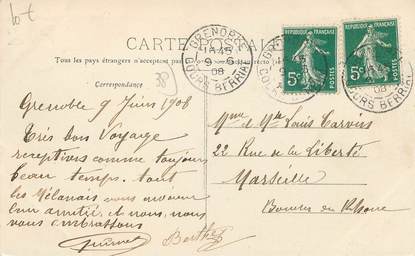 10-t
CARTE POSTALE
Tous les pays étrangers n'acceptent pas
Correspondance
38
GRENOBLE
18 45
9 - 6
08
COURS BERRIAT
REPUBLIQUE FRANÇAISE
5c
POSTES
REPUBLIQUE FRANÇAISE
5c
POSTES
08
COURS BERRIAT
Grenoble 9 Juin 1908
Très bon Voyage
réceptives comme toujours
beau temps. tout
les Mélanais vous envoient
leur amitié et nous, nous
vous embrassons
Berthe
Mme et Mr Louis
22 Rue de la Liberté
Marseille
Bouches du Rhône